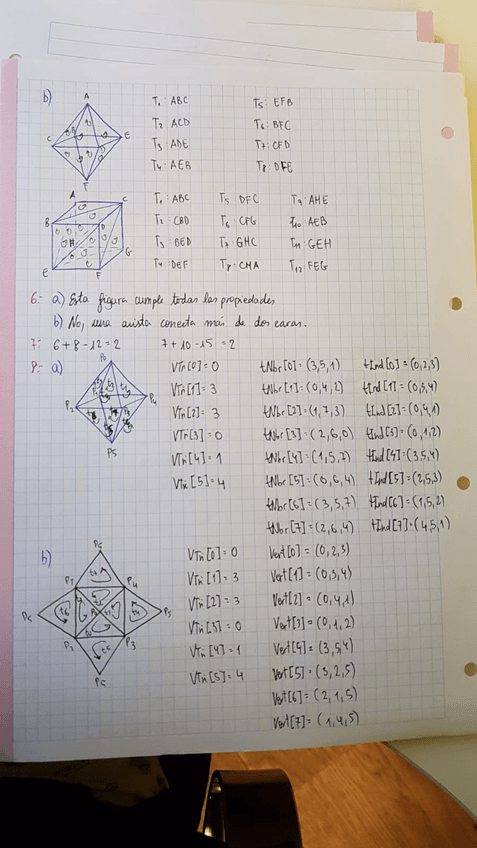 b)
A
C
E
F
T₁: ABC T₅: EFB
T₂ ACD T₆: BFC
T₃: ADE T₇: CFD
T₄: AEB T₈: DFE
A
C
B
D
H
G
E
F
T₁: ABC T₅ DFC T₉: AHE
T₂: CBD T₆: CFG T₁₀: AEB
T₃: BED T₇: GHC T₁₁: GEH
T₄: DEF T₈: CHA T₁₂: FEG
6.- a) Esta figura cumple todas las propiedades
b) No, una arista conecta más de dos caras.
7.- 6 + 8 - 12 = 2 7 + 10 - 15 = 2
a)
P₀
P₂
P₄
P₅
VTri[0] = 0 tNbr[0] = (3,5,1) tInd[0] = (0,2,3)
VTri[1] = 3 tNbr[1] = (0,4,2) tInd[1] = (0,3,4)
VTri[2] = 3 tNbr[2] = (1,7,3) tInd[2] = (0,4,1)
VTri[3] = 0 tNbr[3] = (2,6,0) tInd[3] = (0,1,2)
VTri[4] = 1 tNbr[4] = (1,5,7) tInd[4] = (3,5,4)
VTri[5] = 4 tNbr[5] = (0,6,4) tInd[5] = (2,5,3)
tNbr[6] = (3,5,7) tInd[6] = (1,5,2)
tNbr[7] = (2,6,4) tInd[7] = (4,5,1)
b)
P₄
P₅
P₂
P₃
P₅
VTri[0] = 0 Vert[0] = (0,2,3)
VTri[1] = 3 Vert[1] = (0,3,4)
VTri[2] = 3 Vert[2] = (0,4,1)
VTri[3] = 0 Vert[3] = (0,1,2)
VTri[4] = 1 Vert[4] = (3,5,4)
VTri[5] = 4 Vert[5] = (3,2,5)
Vert[6] = (2,1,5)
Vert[7] = (1,4,5)